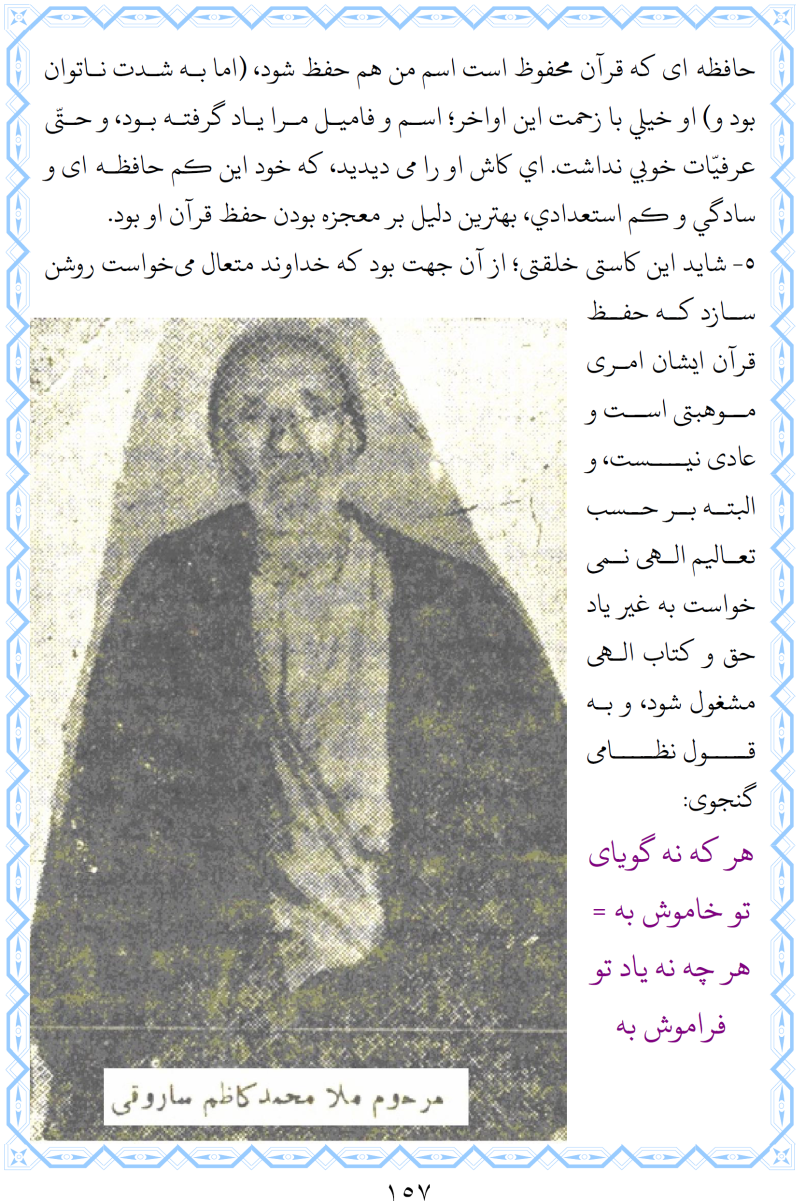 حافظه ای که قرآن محفوظ است اسم من هم حفظ شود، (اما به شدت ناتوان
بود و) او خیلي با زحمت این اواخر؛ اسم و فامیل مرا یاد گرفته بود، و حتّی
عرفیّات خوبي نداشت. اي کاش او را می دیدید، که خود این کم حافظه ای و
سادگي و کم استعدادي، بهترین دلیل بر معجزه بودن حفظ قرآن او بود.
۵- شاید این کاستی خلقتی؛ از آن جهت بود که خداوند متعال می‌خواست روشن
سازد که حفظ
قرآن ایشان امری
موهبتی است و
عادی نیست، و
البته بر حسب
تعالیم الهی نمی
خواست به غیر یاد
حق و کتاب الهی
مشغول شود، و به
قول نظامی
گنجوی:
هر که نه گویای
تو خاموش به =
هر چه نه یاد تو
فراموش به
مرحوم ملا محمدکاظم ساروقی
۱۵۷